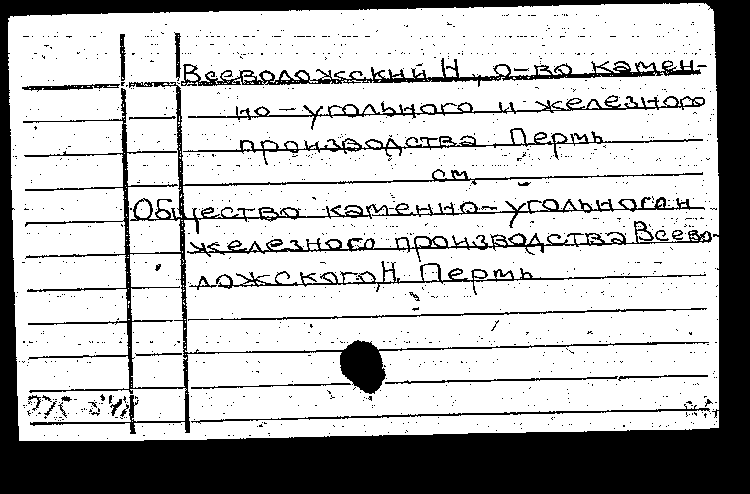 Всеволожский Н, о-во камен-
но-угольного и железного
производства. Пермь
см.
Общество каменно-угольного и
железного производства Всево-
ложского, Н. Пермь